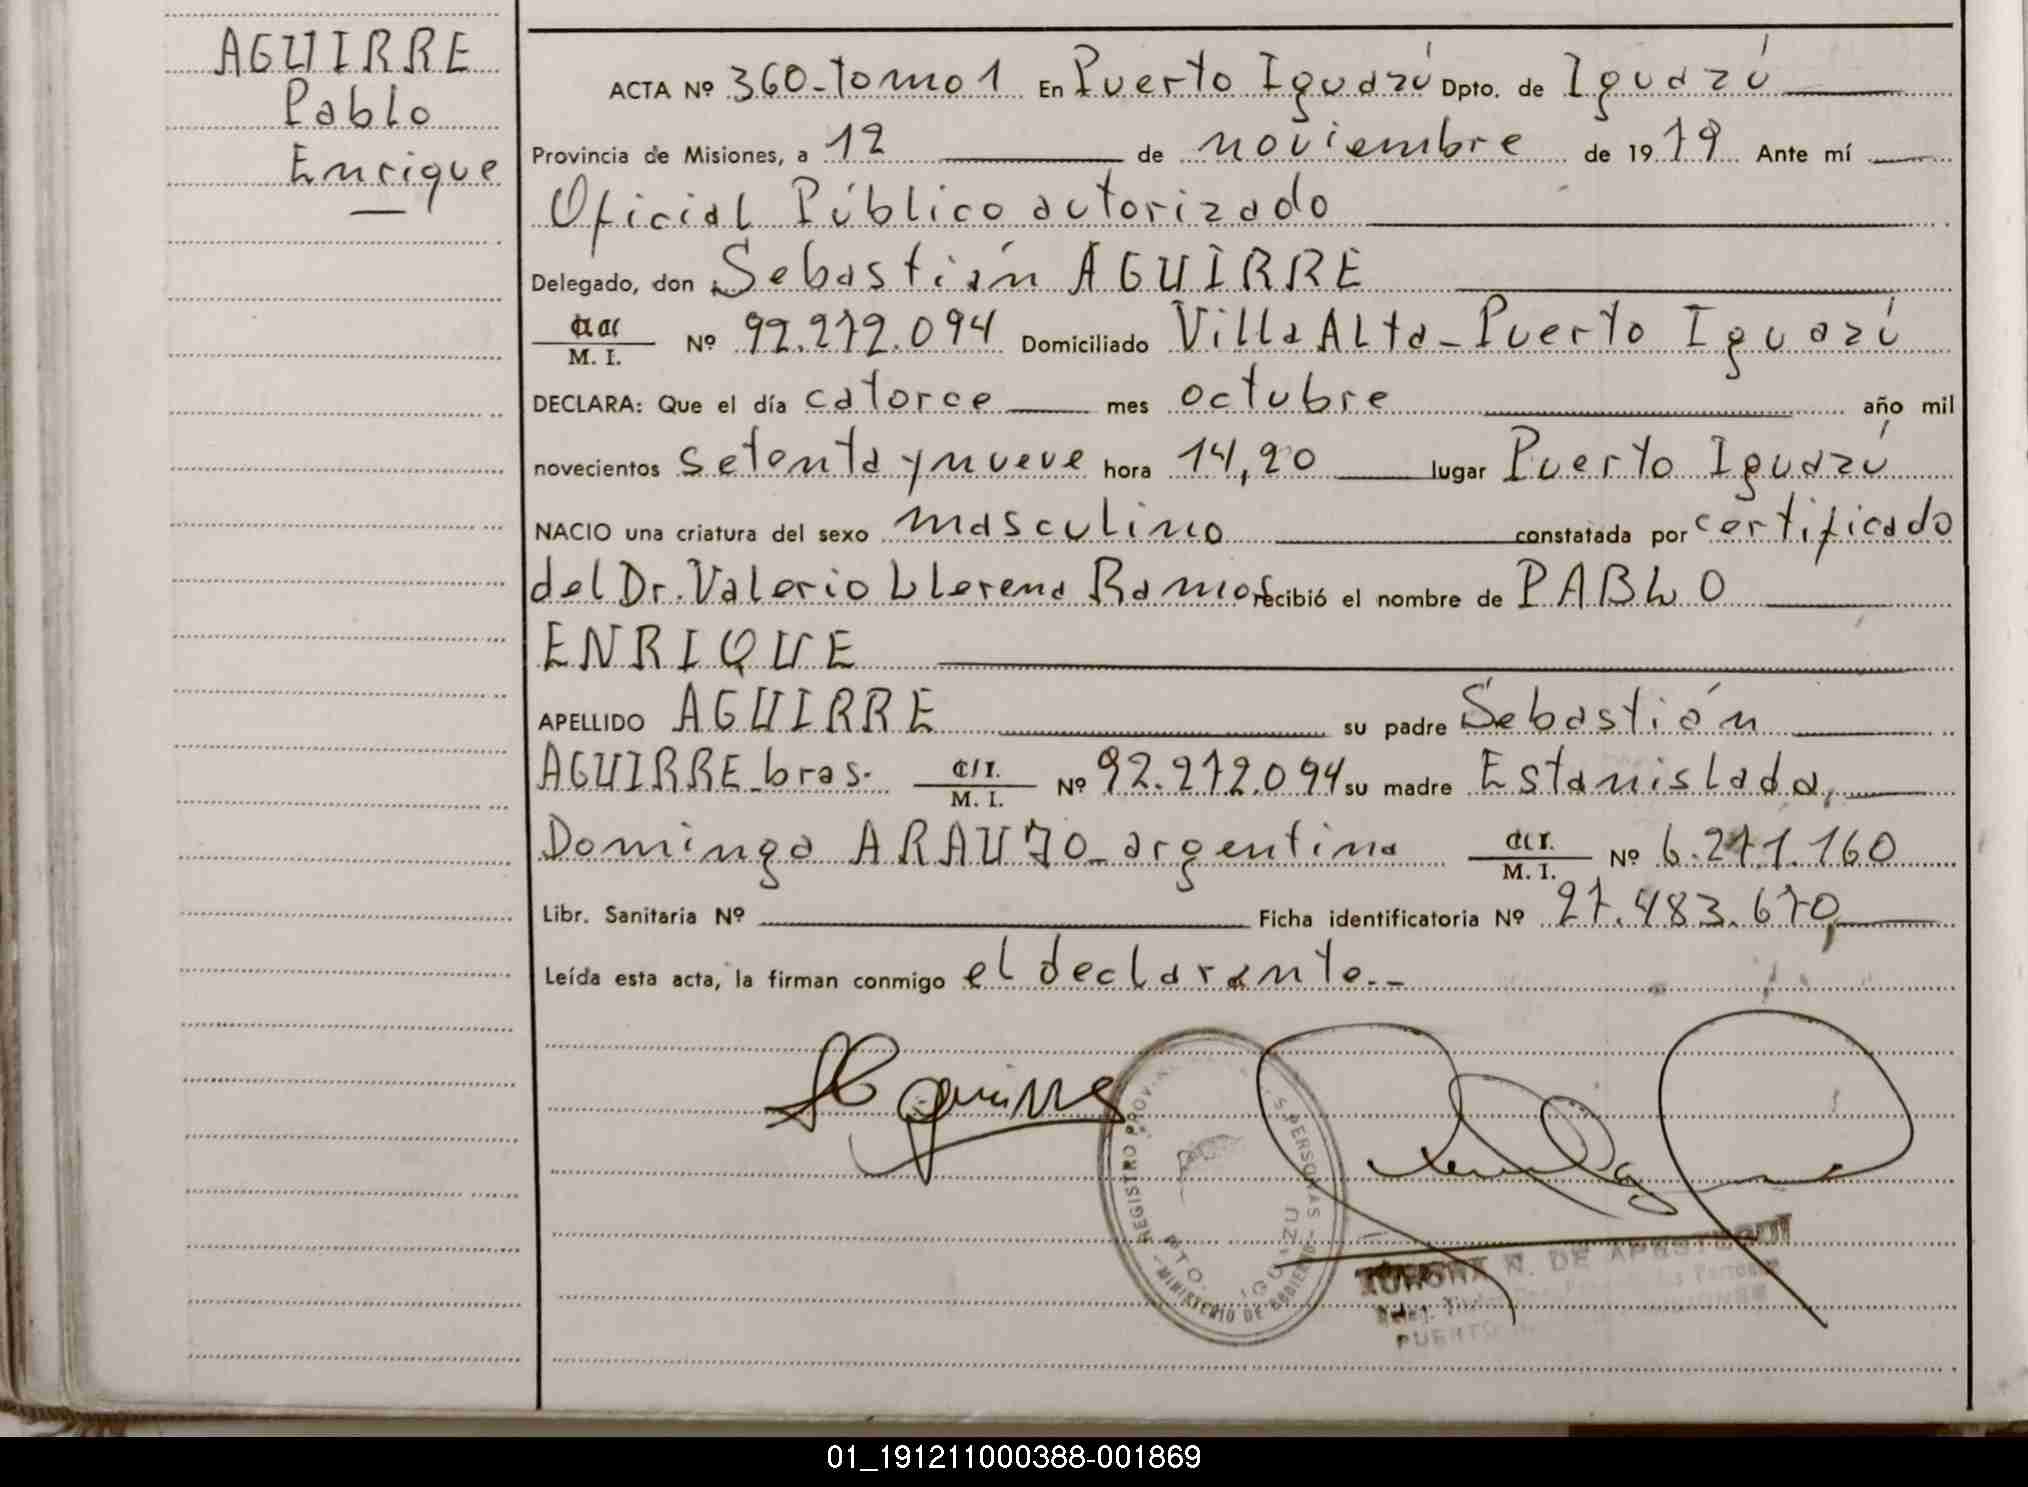 AGUIRRE
Pablo
Enrique
ACTA Nº 360-tomo 1 En Puerto Iguazú Dpto. de Iguazú
Provincia de Misiones, a 12 de noviembre de 1979 Ante mí
Oficial Público autorizado
Delegado, don Sebastián AGUIRRE
M. I. Nº 92.272.094 Domiciliado Villa Alta - Puerto Iguazú
DECLARA: Que el día catorce mes octubre año mil
novecientos setenta y nueve hora 14,20 lugar Puerto Iguazú
NACIO una criatura del sexo masculino constatada por certificado
del Dr. Valerio Llerena Ramos recibió el nombre de PABLO
ENRIQUE
APELLIDO AGUIRRE su padre Sebastián
AGUIRRE - bras. C.I. M. I. Nº 92.272.094 su madre Estanislada,
Dominga ARAUJO - argentina C.I. M. I. Nº 6.271.160
Libr. Sanitaria Nº Ficha identificatoria Nº 27.483.670,
Leída esta acta, la firman conmigo el declarante.--
Aguirre
REGISTRO PROVIN PERSONAS
PTO. IGUAZU
MINISTERIO DE GOBIERNO
N. DE APESTEGUI
PUERTO
01_191211000388-001869